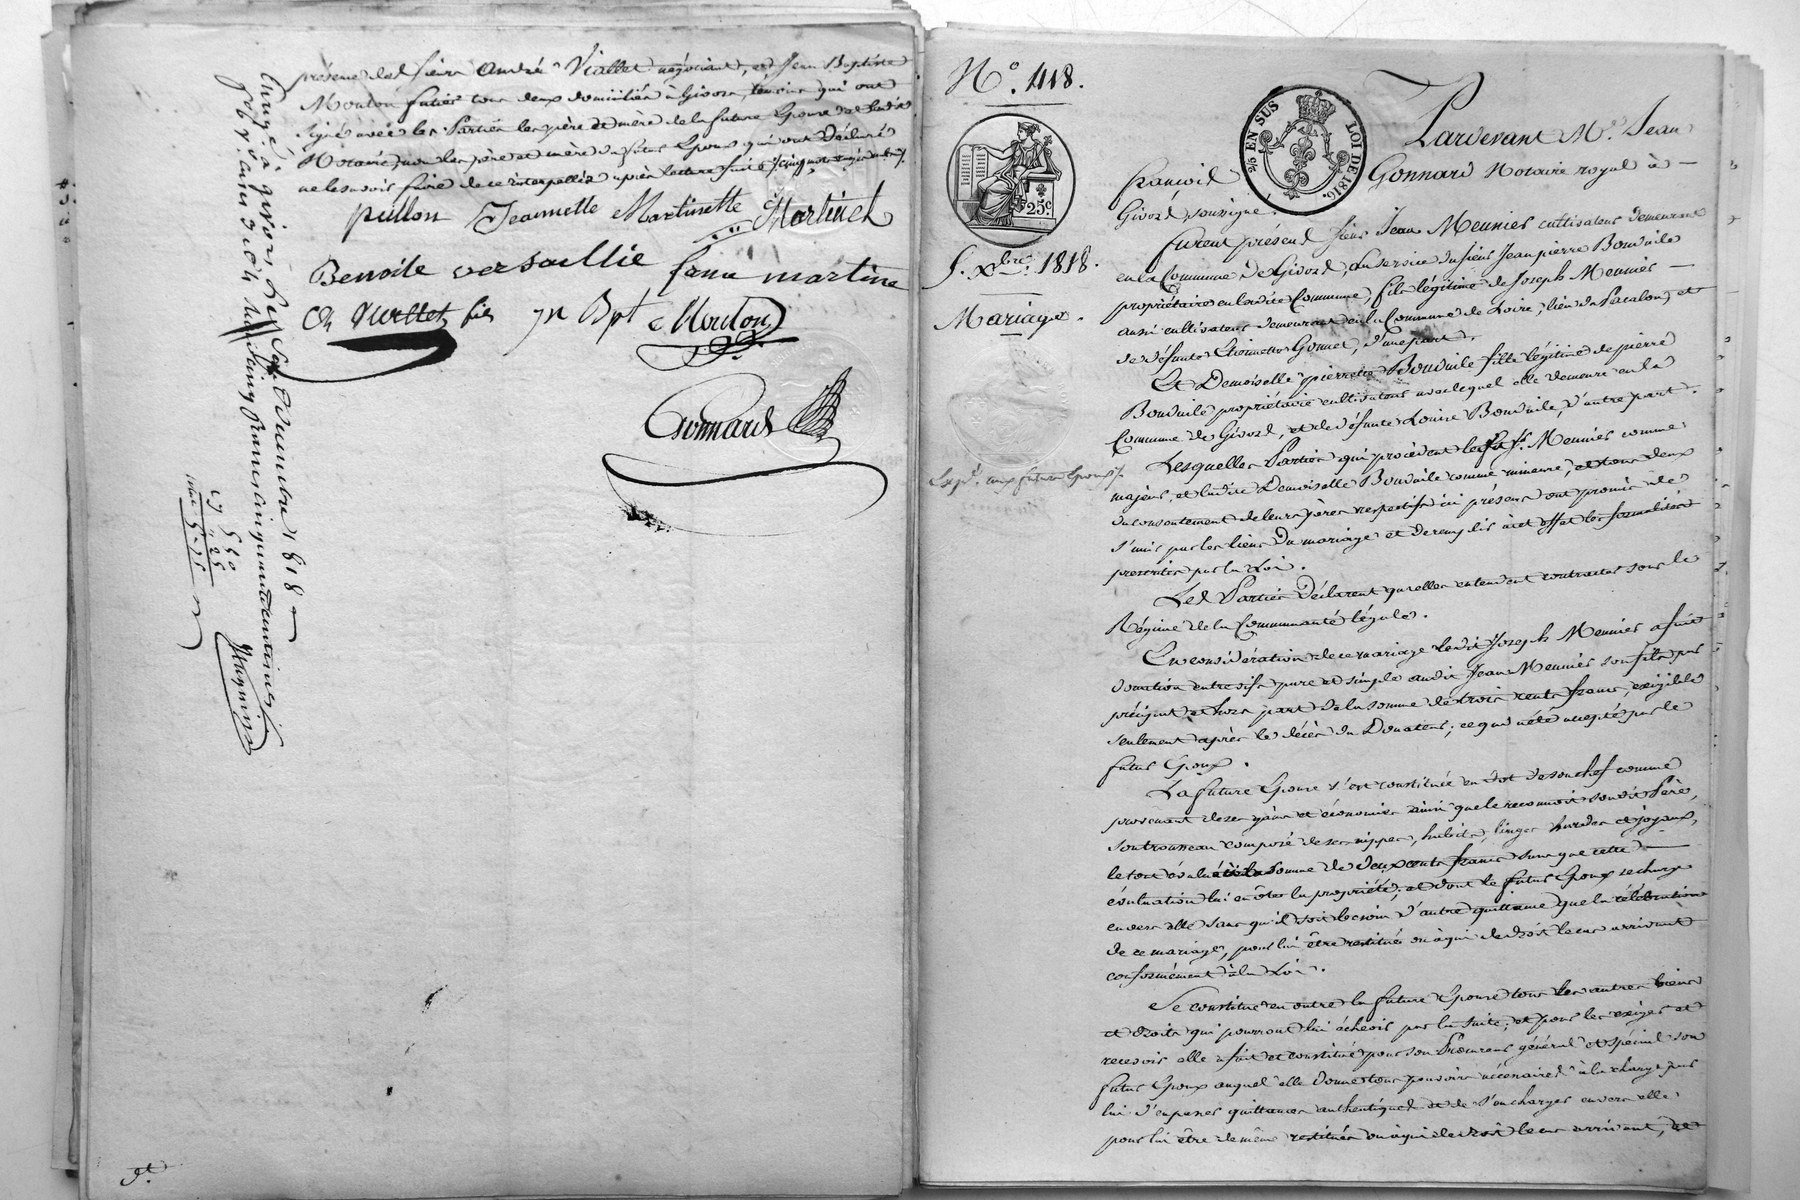 présence des sieurs André Viallet négociant, et Jean Baptiste
Mouton futier tous deux domiciliés à Givors, témoins qui ont
signé avec les Parties les père et mère de la future Epouse et ledit
Notaire, non les père et mère du futur Epoux qui ont déclaré
ne le savoir faire de ce interpellés après lecture faite
pullon Jeannette Martinette Martinet
Benoite versaillie fame martine
An Viallet fils jn Bpt Mouton
Gonnard
Enregé. à givors, le Sept Décembre 1818
cinq francs cinquante centimes
5 50
55
9t.
N.° 418.
25c
5. Xbre. 1818.
Mariage.
Exp.on aux futurs Epoux
2/5 EN SUS
LOI DE 1816.
Pardevant Me. Jean
françois Gonnard Notaire royal à
Givors, soussigné.
furent présens sieur Jean Meunier cultivateur demeurant
en la Commune de Givors, au service du sieur Jean pierre Bonvile
propriétaire en ladite Commune, fils légitime de Joseph Meunier
aussi cultivateur demeurant en la Commune de Loire, lieu du Pacalon, et
de défunte Etiennette Gonnet, d'une part.
Et Demoiselle pierrette Bonvile fille légitime de pierre
Bonvile propriétaire cultivateur avec lequel elle demeure en la
Commune de Givors, et de défunte Louise Bonvile, d'autre part.
Lesquelles Parties qui procèdent led. Sr. Meunier comme
majeur, et ladite Demoiselle Bonvile comme mineure, et tous deux
du consentement de leurs pères respectifs ici présens ont promis de
s'unir par les liens du mariage et de remplir à cet effet les formalités
prescrites par la Loi.
Les Parties déclarent qu'elles entendent contracter sous le
Régime de la Communauté légale.
En considération de ce mariage ledit Joseph Meunier a fait
donation entre vifs pure et simple audit Jean Meunier son fils par
préciput et hors part de la somme de trois cents francs, exigible
seulement après le décès du Donateur; ce qui a été accepté par le
futur Epoux.
La future Epouse s'est constituée en dot de son chef comme
provenant de ses gains et économies ainsi que le reconnoit son dit Père,
son trousseau composé de ses nippes, habits, linges hardes et joyaux,
le tout évalué à la somme de deux cents francs sans que cette
évaluation lui en ôte la propriété; et dont le futur Epoux se charge
envers elle sans qu'il soit besoin d'autre quittance que la célébration
de ce mariage, pour lui être restitués ou à qui de droit le cas arrivant
conformément à la Loi.
Se constitue en outre la future Epouse tous les autres biens
et droits qui pourront lui échoir par la suite; et pour les exiger et
recevoir elle a fait et constitué pour son Procureur général et spécial son
futur Epoux auquel elle donne tous pouvoirs nécessaires à la charge par
lui d'en passer quittances authentiques et de s'en charger envers elle
pour lui être de même restitués ou à qui de droit le cas arrivant, et